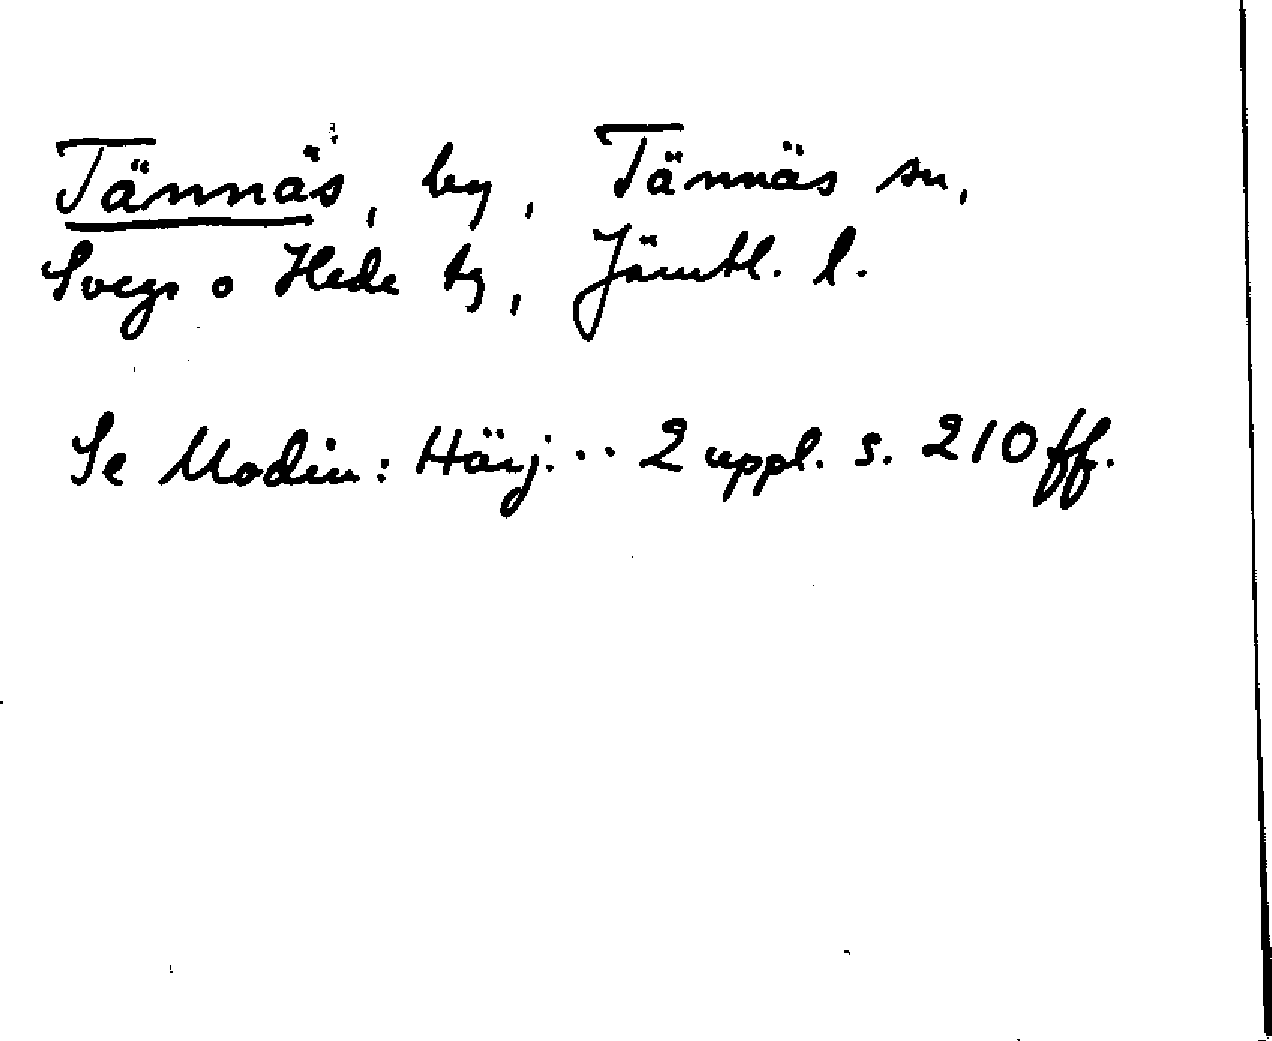 Tännäs, by, Tännäs sn,
Svegs o Hede tg, Jämtl. l.
Se Modin: Härj. .. 2 uppl. s. 210 ff.